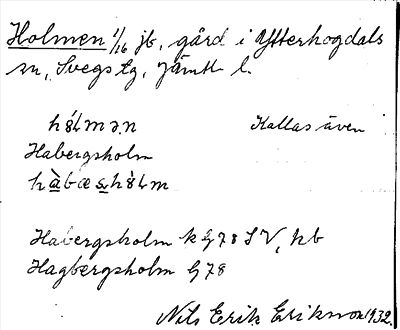 Holmen 1/16 jb, gård i Ytterhogdals
sn, Svegs tg, Jämtl l.
hólmən Kallas även
Habergsholm
hàbæshólm
Habergsholm k G 78 S V, kb
Hagbergsholm G 78
Nils Erik Eriksson 1932.